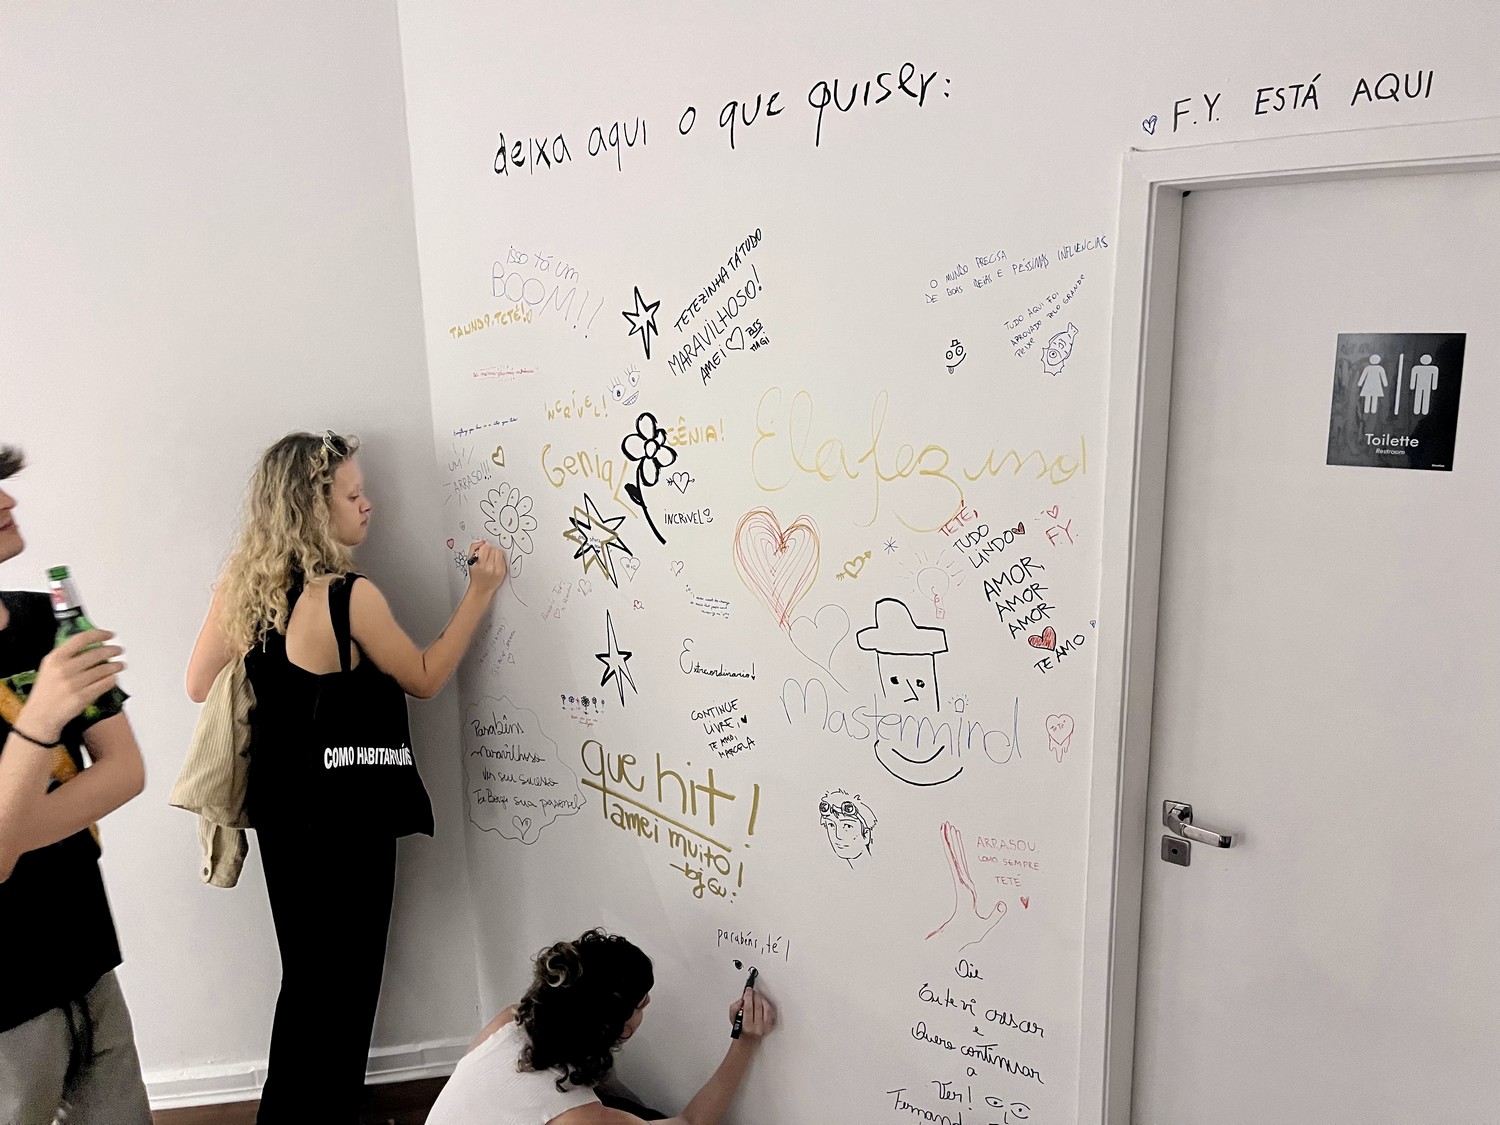 deixa aqui o que quiser:
F.Y. ESTÁ AQUI
isso tá um
BOOM!!
TÁ LINDO, TETÉ!
TETEZINHA TÁ TUDO
MARAVILHOSO!
AMEI
O MUNDO PRECISA
DE BOAS IDEIAS E PÉSSIMAS INFLUÊNCIAS
TUDO AQUI FOI
APROVADO PELO GRANDE
PEIXE
INCRÍVEL!
GÊNIA!
Genial
UM
ARRASO!!!
INCRÍVEL
Ela fez isso
TETÉ,
TUDO
LINDO
F.Y.
AMOR
AMOR
AMOR
TE AMO
Toilette
Restroom
Extraordinário!
CONTINUE
LIVRE,
TE AMO,
MARCELA
Mastermind
COMO HABITAR
Parabéns
maravilhoso
ver seu sucesso
que hit!
amei muito!
bj Gu:
ARRASOU.
COMO SEMPRE
TETÉ
parabéns, té!
Eu te vi crescer
e
Quero continuar
a
Ver!